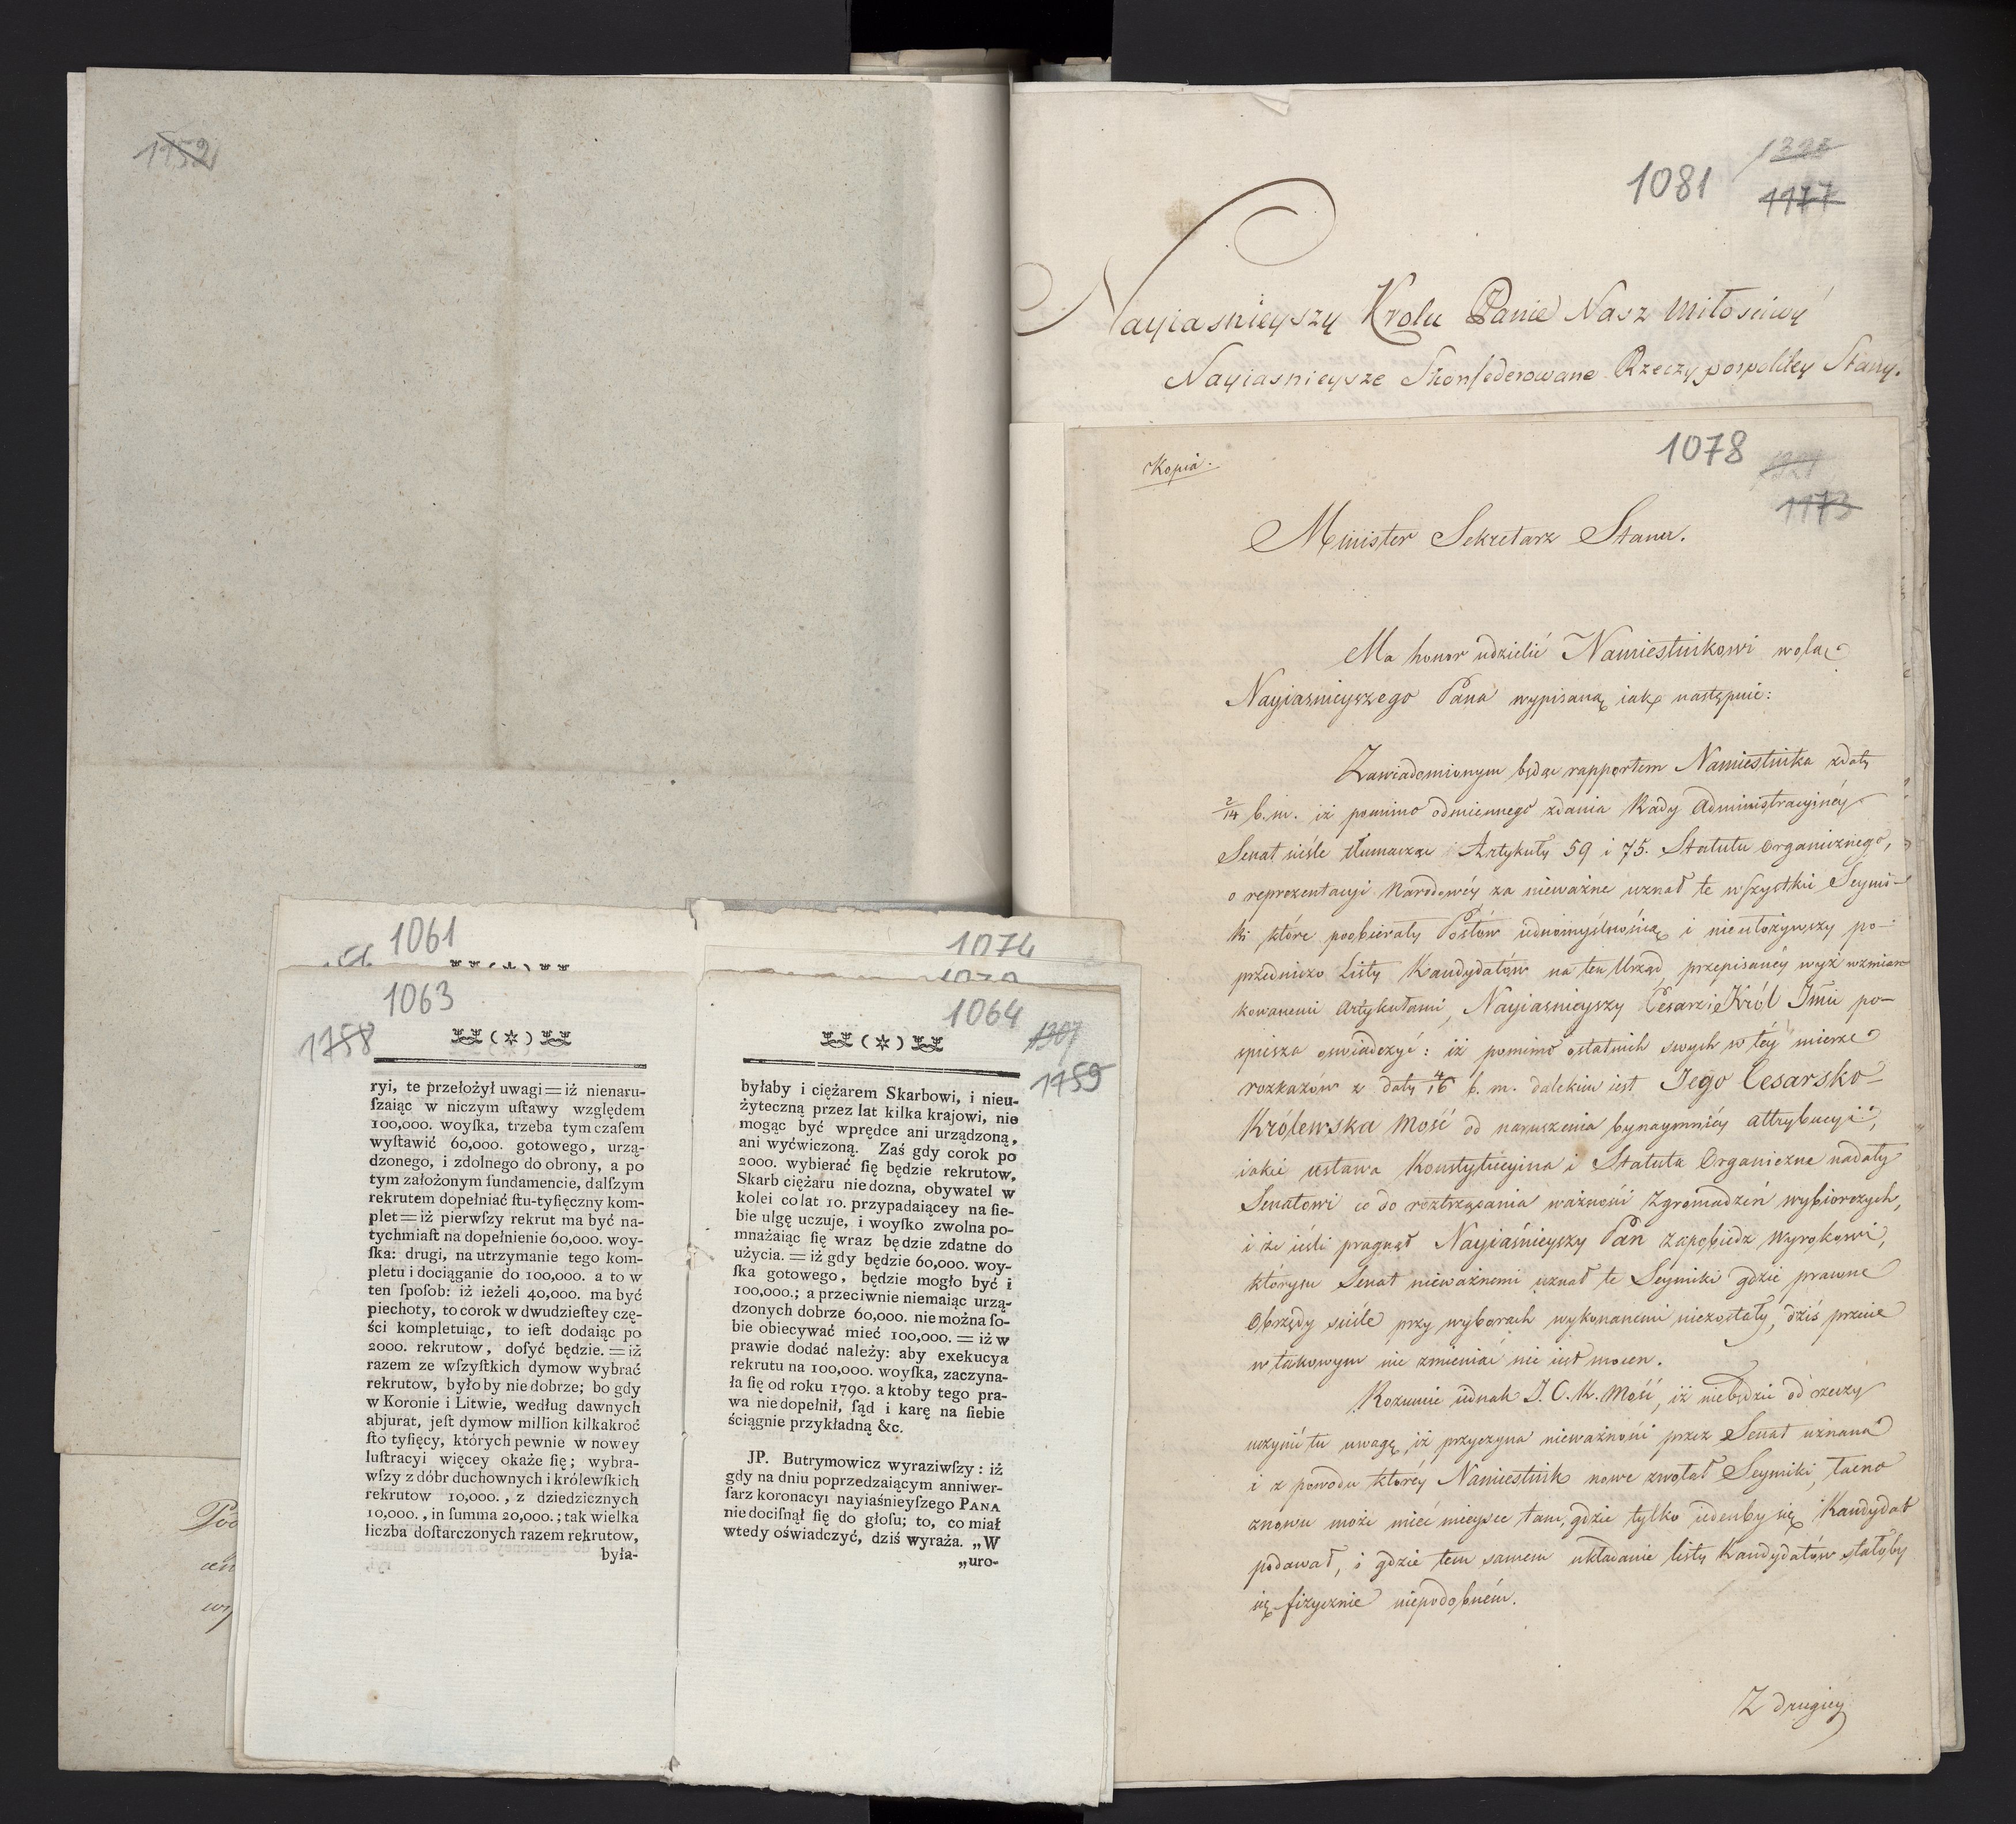 1152
1061
1074
1063
1758
(*)
ryi, te przełożył uwagi = iż nienaru-
ſzaiąc w niczym uſtawy względem
100,000. woyſka, trzeba tym czaſem
wyſtawić 60,000. gotowego, urzą-
dzonego, i zdolnego do obrony, a po
tym założonym fundamencie, dalſzym
rekrutem dopełniać ſtu-tyſięczny kom-
plet = iż pierwſzy rekrut ma być na-
tychmiaſt na dopełnienie 60,000. woy-
ſka: drugi, na utrzymanie tego kom-
pletu i dociąganie do 100,000. a to w
ten ſpoſob: iż ieżeli 40,000. ma być
piechoty, to corok w dwudzieſtey czę-
ści kompletuiąc, to ieſt dodaiąc po
2000. rekrutow, doſyć będzie. = iż
razem ze wſzyſtkich dymow wybrać
rekrutow, byłoby nie dobrze; bo gdy
w Koronie i Litwie, według dawnych
abjurat, jeſt dymow million kilkakroć
ſto tyſięcy, których pewnie w nowey
luſtracyi więcey okaże ſię; wybra-
wſzy z dóbr duchownych i królewſkich
rekrutow 10,000., z dziedzicznych
10,000., in ſumma 20,000.; tak wielka
liczba doſtarczonych razem rekrutow,
była-
1064
1307
1759
(*)
byłaby i ciężarem Skarbowi, i nieu-
żyteczną przez lat kilka krajowi, nie
mogąc być wprędce ani urządzoną,
ani wyćwiczoną. Zaś gdy corok po
2000. wybierać ſię będzie rekrutow,
Skarb ciężaru nie dozna, obywatel w
kolei co lat 10. przypadaiącey na ſie-
bie ulgę uczuje, i woyſko zwolna po-
mnażaiąc ſię wraz będzie zdatne do
użycia. = iż gdy będzie 60,000. woy-
ſka gotowego, będzie mogło być i
100,000.; a przeciwnie niemaiąc urzą-
dzonych dobrze 60,000. nie można ſo-
bie obiecywać mieć 100,000. = iż w
prawie dodać należy: aby exekucya
rekrutu na 100,000. woyſka, zaczyna-
ła ſię od roku 1790. a ktoby tego pra-
wa nie dopełnił, ſąd i karę na ſiebie
ściągnie przykładną &c.
JP. Butrymowicz wyraziwſzy: iż
gdy na dniu poprzedzaiącym anniwer-
ſarz koronacyi nayiaśnieyſzego PANA
nie dociſnął ſię do głoſu; to, co miał
wtedy oświadczyć, dziś wyraża. „W
„uro-
1081
1177
Nayiasnieyszy Krolu Panie Nasz Miłosciwy
Nayiasnieysze Skonfederowane Rzeczypospolitey Stany.
Kopia.
1078
1173
Minister Sekretarz Stanu.
Ma honor udzielić Namiestnikowi wolą
Nayiasnieyszego Pana wypisaną iak następuie:
Zawiadomionym będąc rapportem Namiestnika zdaty
2/14 b. m. iż pomimo odmiennego zdania Rady Administracyinéy
Senat ściśle tłumacząc Artykuły 59 i 75. Statutu Organicznego,
o reprezentacyi Narodowéy, za nieważne uznał te wszystkie Seymi-
ki które poobierały Posłów iednomyślnością i nieułożywszy po-
przedniczo Listy Kandydatów na ten Urząd, przepisanéy wyż wzmian
kowanemi Artykułami, Nayiasnieyszy Cesarz i Król Jmć po-
spiesza oswiadczyć: iż pomimo ostatnich swych w téy mierze
rozkazów z daty 4/16 b. m. dalekim iest Jego Cesarsko-
Królewska Mość od naruszenia bynaymniéy attrybucyi,
iakie ustawa Konstytucyina i Statuta Organiczne nadały
Senatowi co do roztrząsania ważności Zgromadzeń wybiorczych,
i że ieśli pragnął Nayiaśnieyszy Pan zapobiedz Wyrokowi,
którym Senat nieważnemi uznał te Seymiki gdzie prawne
Obrzędy ściśle przy wyborach wykonanemi niezostały, dziś przecie
w takowym nic zmieniać nie iest mocen.
Rozumie iednak J. C. K. Mość, iż niebędzie od rzeczy
uczynić tu uwagę, iż przyczyna nieważności przez Senat uznana
i z powodu któréy Namiestnik nowe zwołał Seymiki, łacno
znowu może mieć mieysce tam, gdzie tylko ieden by się Kandydat
podawał, i gdzie tem samem układanie listy Kandydatów stałoby
się fizycznie niepodobném.
Z drugiey